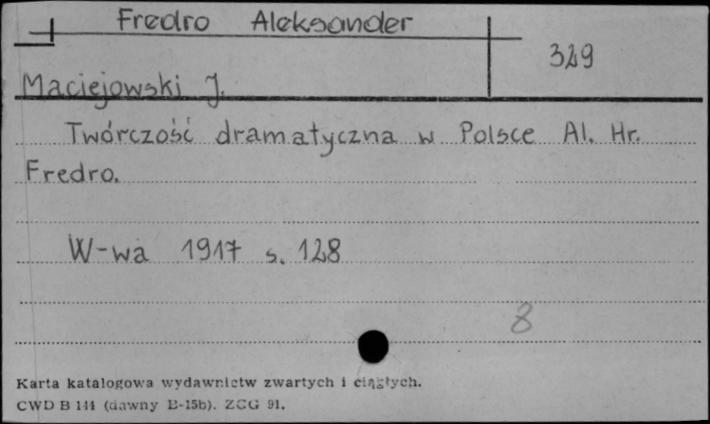 Fredro Aleksander
329
Maciejowski J.
Twórczość dramatyczna w Polsce Al. Hr.
Fredro.
W-wa 1917 s. 128
8
Karta katalogowa wydawnictw zwartych i ciągłych.
CWD B 144 (dawny B-15b). ZCG 91.